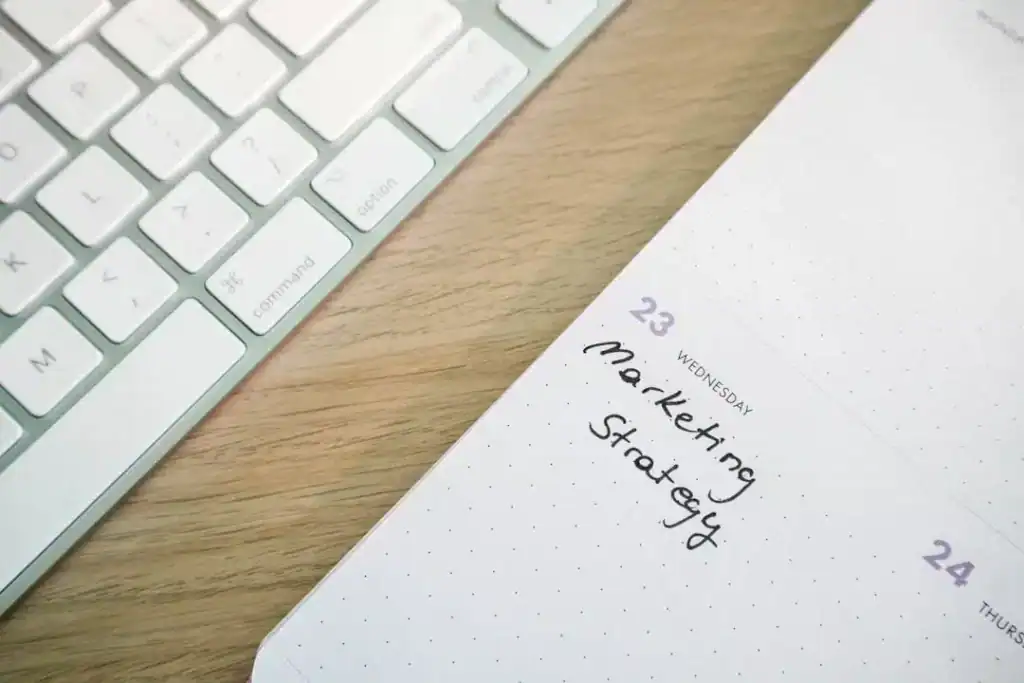 P
O
L
K
M
:
;
?
/
>
.
<
,
option
⌘
command
23
WEDNESDAY
Marketing
Strategy
24